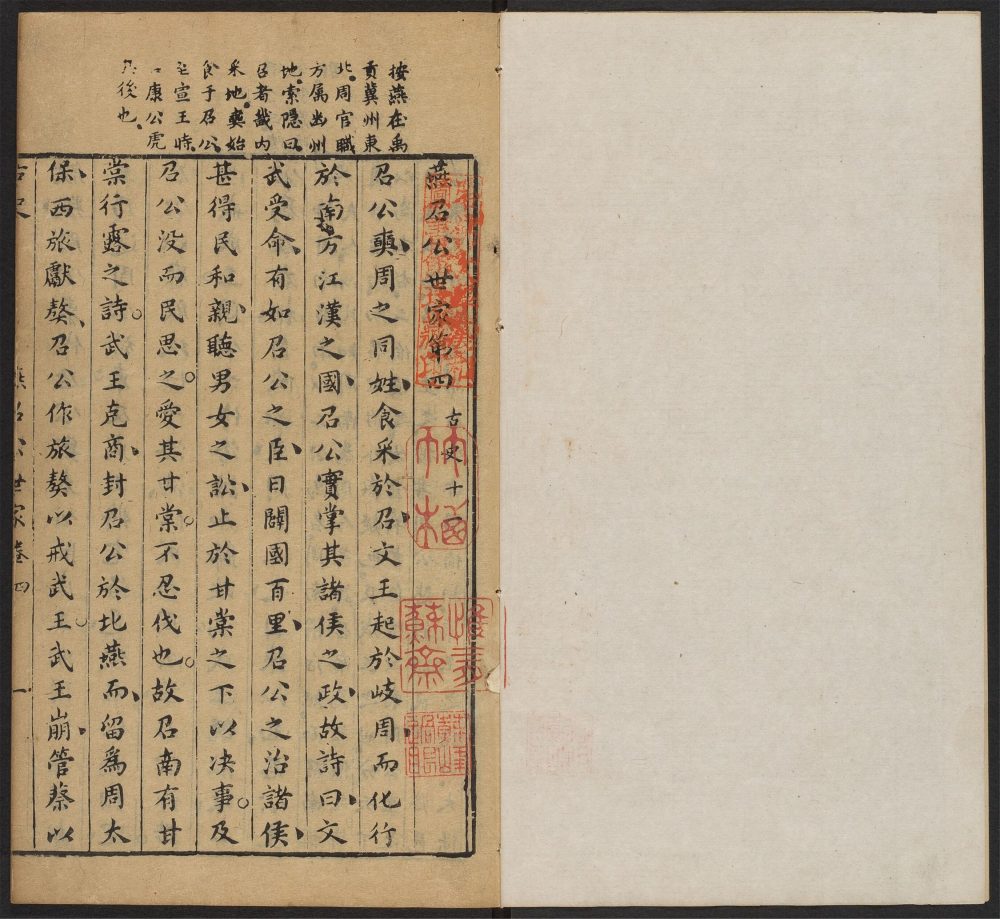 按燕在禹
貢冀州東
北周官職
方属幽州
地索隱曰
召者畿内
采地奭始
食于召公
宣王時
康公虎
後也
燕召公世家第四 古史十
召公奭周之同姓食采於召文王起於岐周而化行
於南方江漢之國召公實掌其諸侯之政故詩曰文
武受命有如召公之臣日闢國百里召公之治諸侯
甚得民和親聽男女之訟止於甘棠之下以决事及
召公没而民思之愛其甘棠不忍伐也故召南有甘
棠行露之詩武王克商封召公於北燕而留爲周太
保西旅獻獒召公作旅獒以戒武王武王崩管蔡以
古史 燕召公世家卷四 一
竹栖
蘇齋